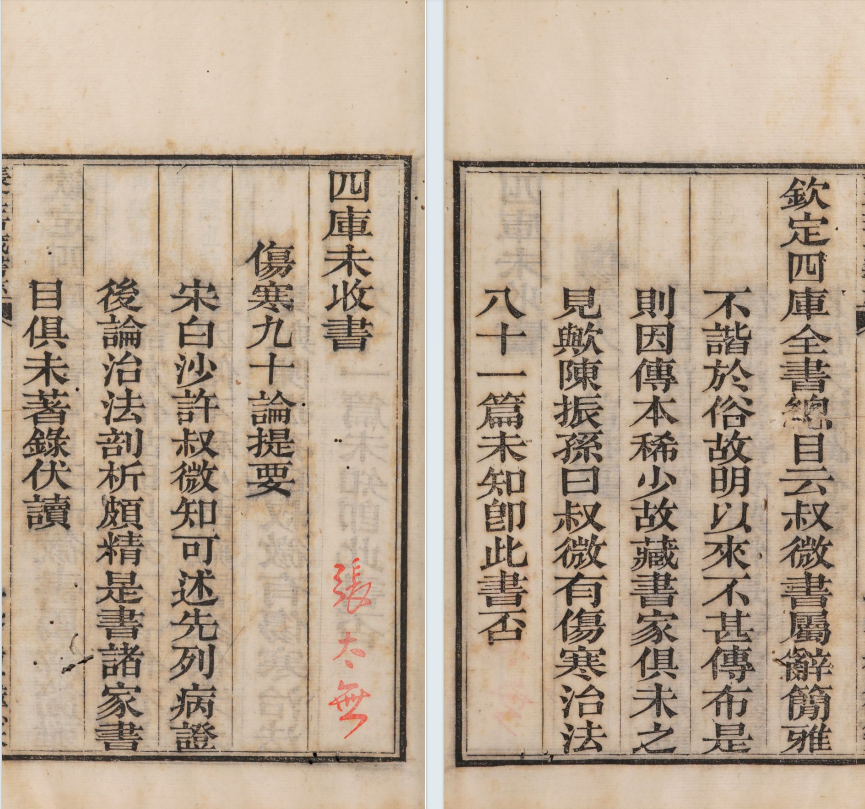 四庫未收書
張太無
傷寒九十論提要
宋白沙許叔微知可述先列病證
後論治法剖析頗精是書諸家書
目俱未著錄伏讀
欽定四庫全書總目云叔微書屬辭簡雅
不諧於俗故明以來不甚傳布是
則因傳本稀少故藏書家俱未之
見歟陳振孫曰叔微有傷寒治法
八十一篇未知卽此書否